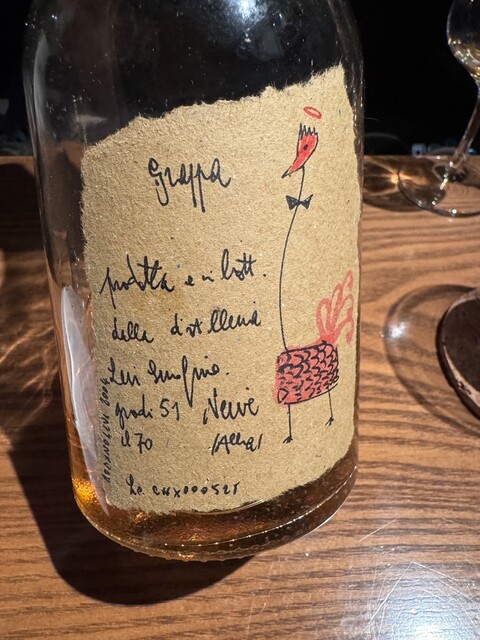 grappa
prodotta e in bott.
della distilleria
Levi Serafino.
gradi 51 Neive
cl 70 (Alba)
Lo CHX000521